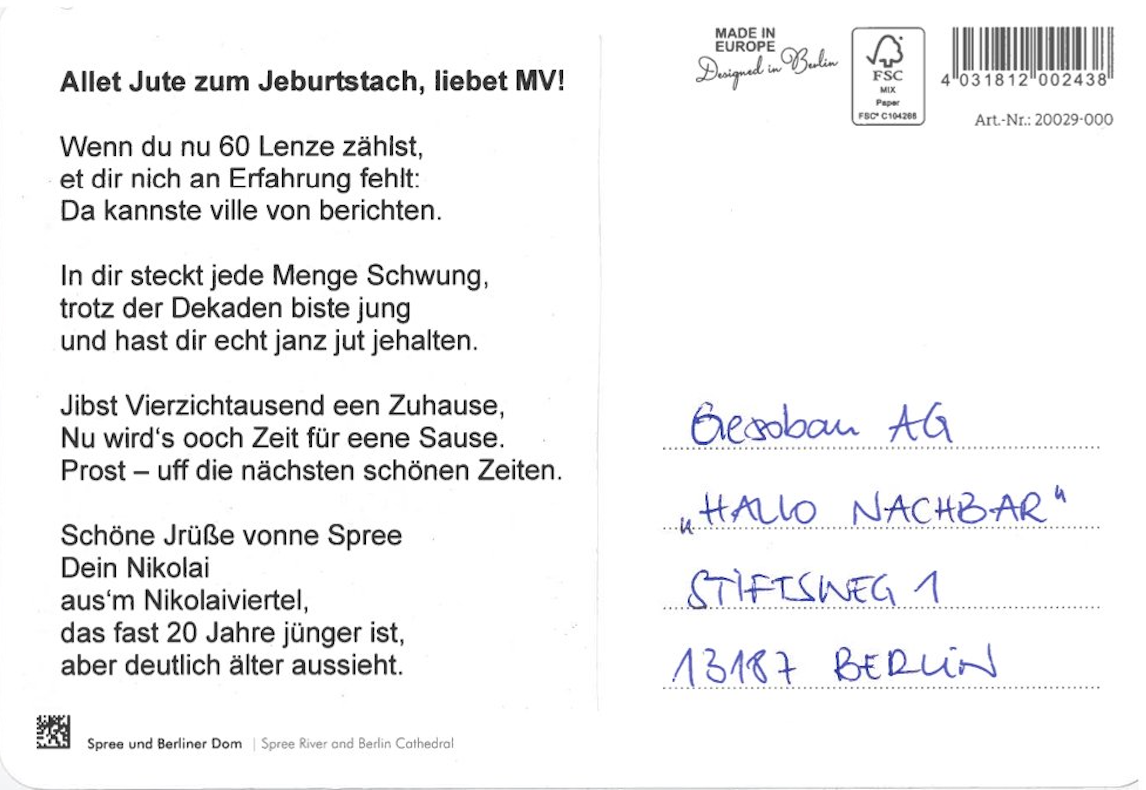 Allet Jute zum Jeburtstach, liebet MV!
Wenn du nu 60 Lenze zählst,
et dir nich an Erfahrung fehlt:
Da kannste ville von berichten.
In dir steckt jede Menge Schwung,
trotz der Dekaden biste jung
und hast dir echt janz jut jehalten.
Jibst Vierzichtausend een Zuhause,
Nu wird‘s ooch Zeit für eene Sause.
Prost – uff die nächsten schönen Zeiten.
Schöne Jrüße vonne Spree
Dein Nikolai
aus‘m Nikolaiviertel,
das fast 20 Jahre jünger ist,
aber deutlich älter aussieht.
Spree und Berliner Dom | Spree River and Berlin Cathedral
MADE IN
EUROPE
Designed in Berlin
FSC
MIX
Paper
FSC® C104266
4 031812 002438
Art.-Nr.: 20029-000
Gesobau AG
„HALLO NACHBAR“
STIFTSWEG 1
13187 BERLIN